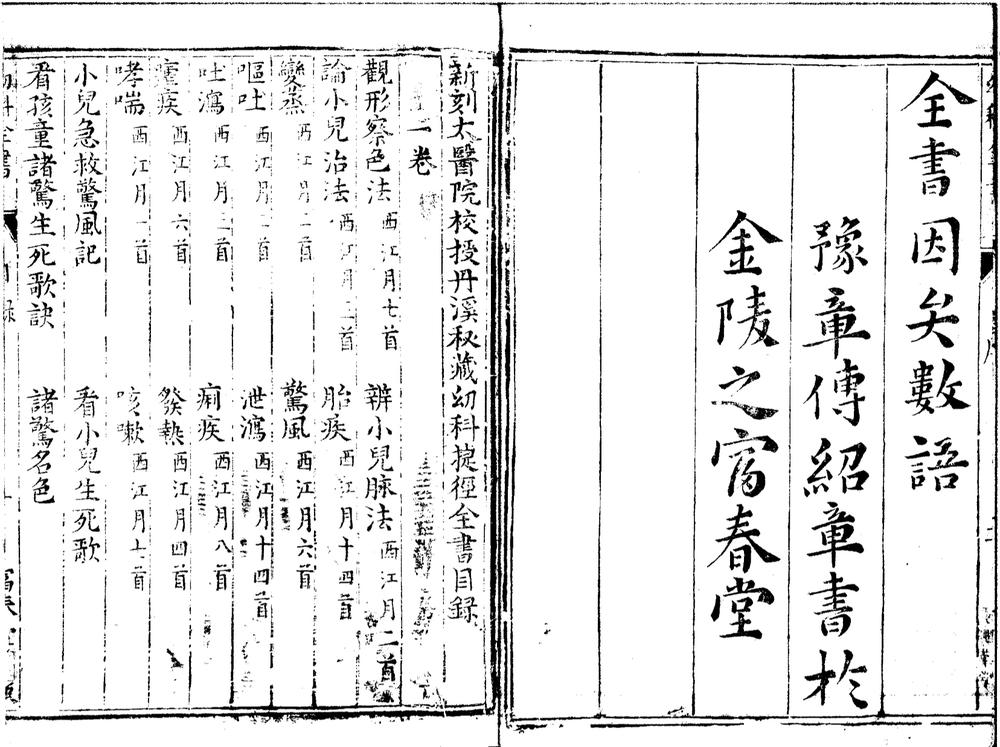 全書因矣數語
豫章傅紹章書於
金陵之富春堂
新刻太醫院校授丹溪秘藏幼科捷徑全書目錄
一卷
觀形察色法 西江月七首 辨小兒脉法 西江月二首
論小兒治法 西江月二首 胎疾 西江月十四首
變蒸 西江月二首 驚風 西江月六首
嘔吐 西江月二首 泄瀉 西江月十四首
吐瀉 西江月三首 痢疾 西江月八首
瘧疾 西江月六首 發熱 西江月四首
哮喘 西江月一首 咳嗽 西江月七首
小兒急救驚風記 看小兒生死歌
看孩童諸驚生死歌訣 諸驚名色
科全書 目錄 富春堂版